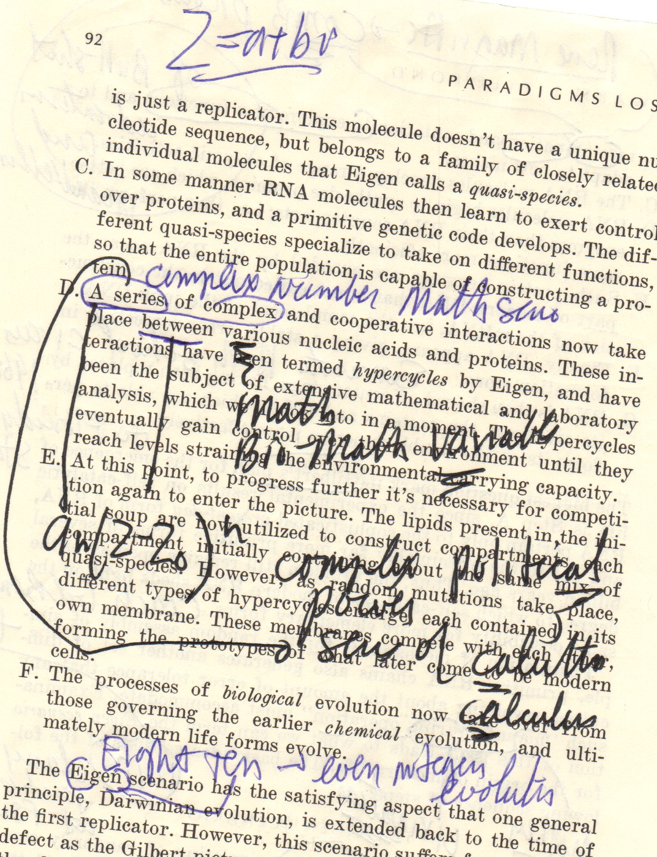 92
Z=a+bi
PARADIGMS LOS
is just a replicator. This molecule doesn't have a unique nu-
cleotide sequence, but belongs to a family of closely related
individual molecules that Eigen calls a quasi-species.
C. In some manner RNA molecules then learn to exert control
over proteins, and a primitive genetic code develops. The dif-
ferent quasi-species specialize to take on different functions,
so that the entire population is capable of constructing a pro-
tein.
complex Number Math
D. A series of complex and cooperative interactions now take
place between various nucleic acids and proteins. These in-
teractions have been termed hypercycles by Eigen, and have
been the subject of extensive mathematical and laboratory
analysis, which we into in a moment. The hypercycles
Math
eventually gain control over their environment until they
Bio Math variable
reach levels straining the environmental carrying capacity.
E. At this point, to progress further it's necessary for competi-
tion again to enter the picture. The lipids present in the ini-
tial soup are now utilized to construct compartments, each
an(z-z0)^n
compartment initially containing about the same mix of
complex political
quasi-species. However, as random mutations take place,
different types of hypercycles emerge, each contained in its
own membrane. These membranes compete with each other,
of calcutta
forming the prototypes of what later come to be modern
cells.
F. The processes of biological evolution now take over from
calculus
those governing the earlier chemical evolution, and ulti-
mately modern life forms evolve.
Eight → even integers
The Eigen scenario has the satisfying aspect that one general
principle, Darwinian evolution, is extended back to the time of
the first replicator. However, this scenario suffers
defect as the Gilbert